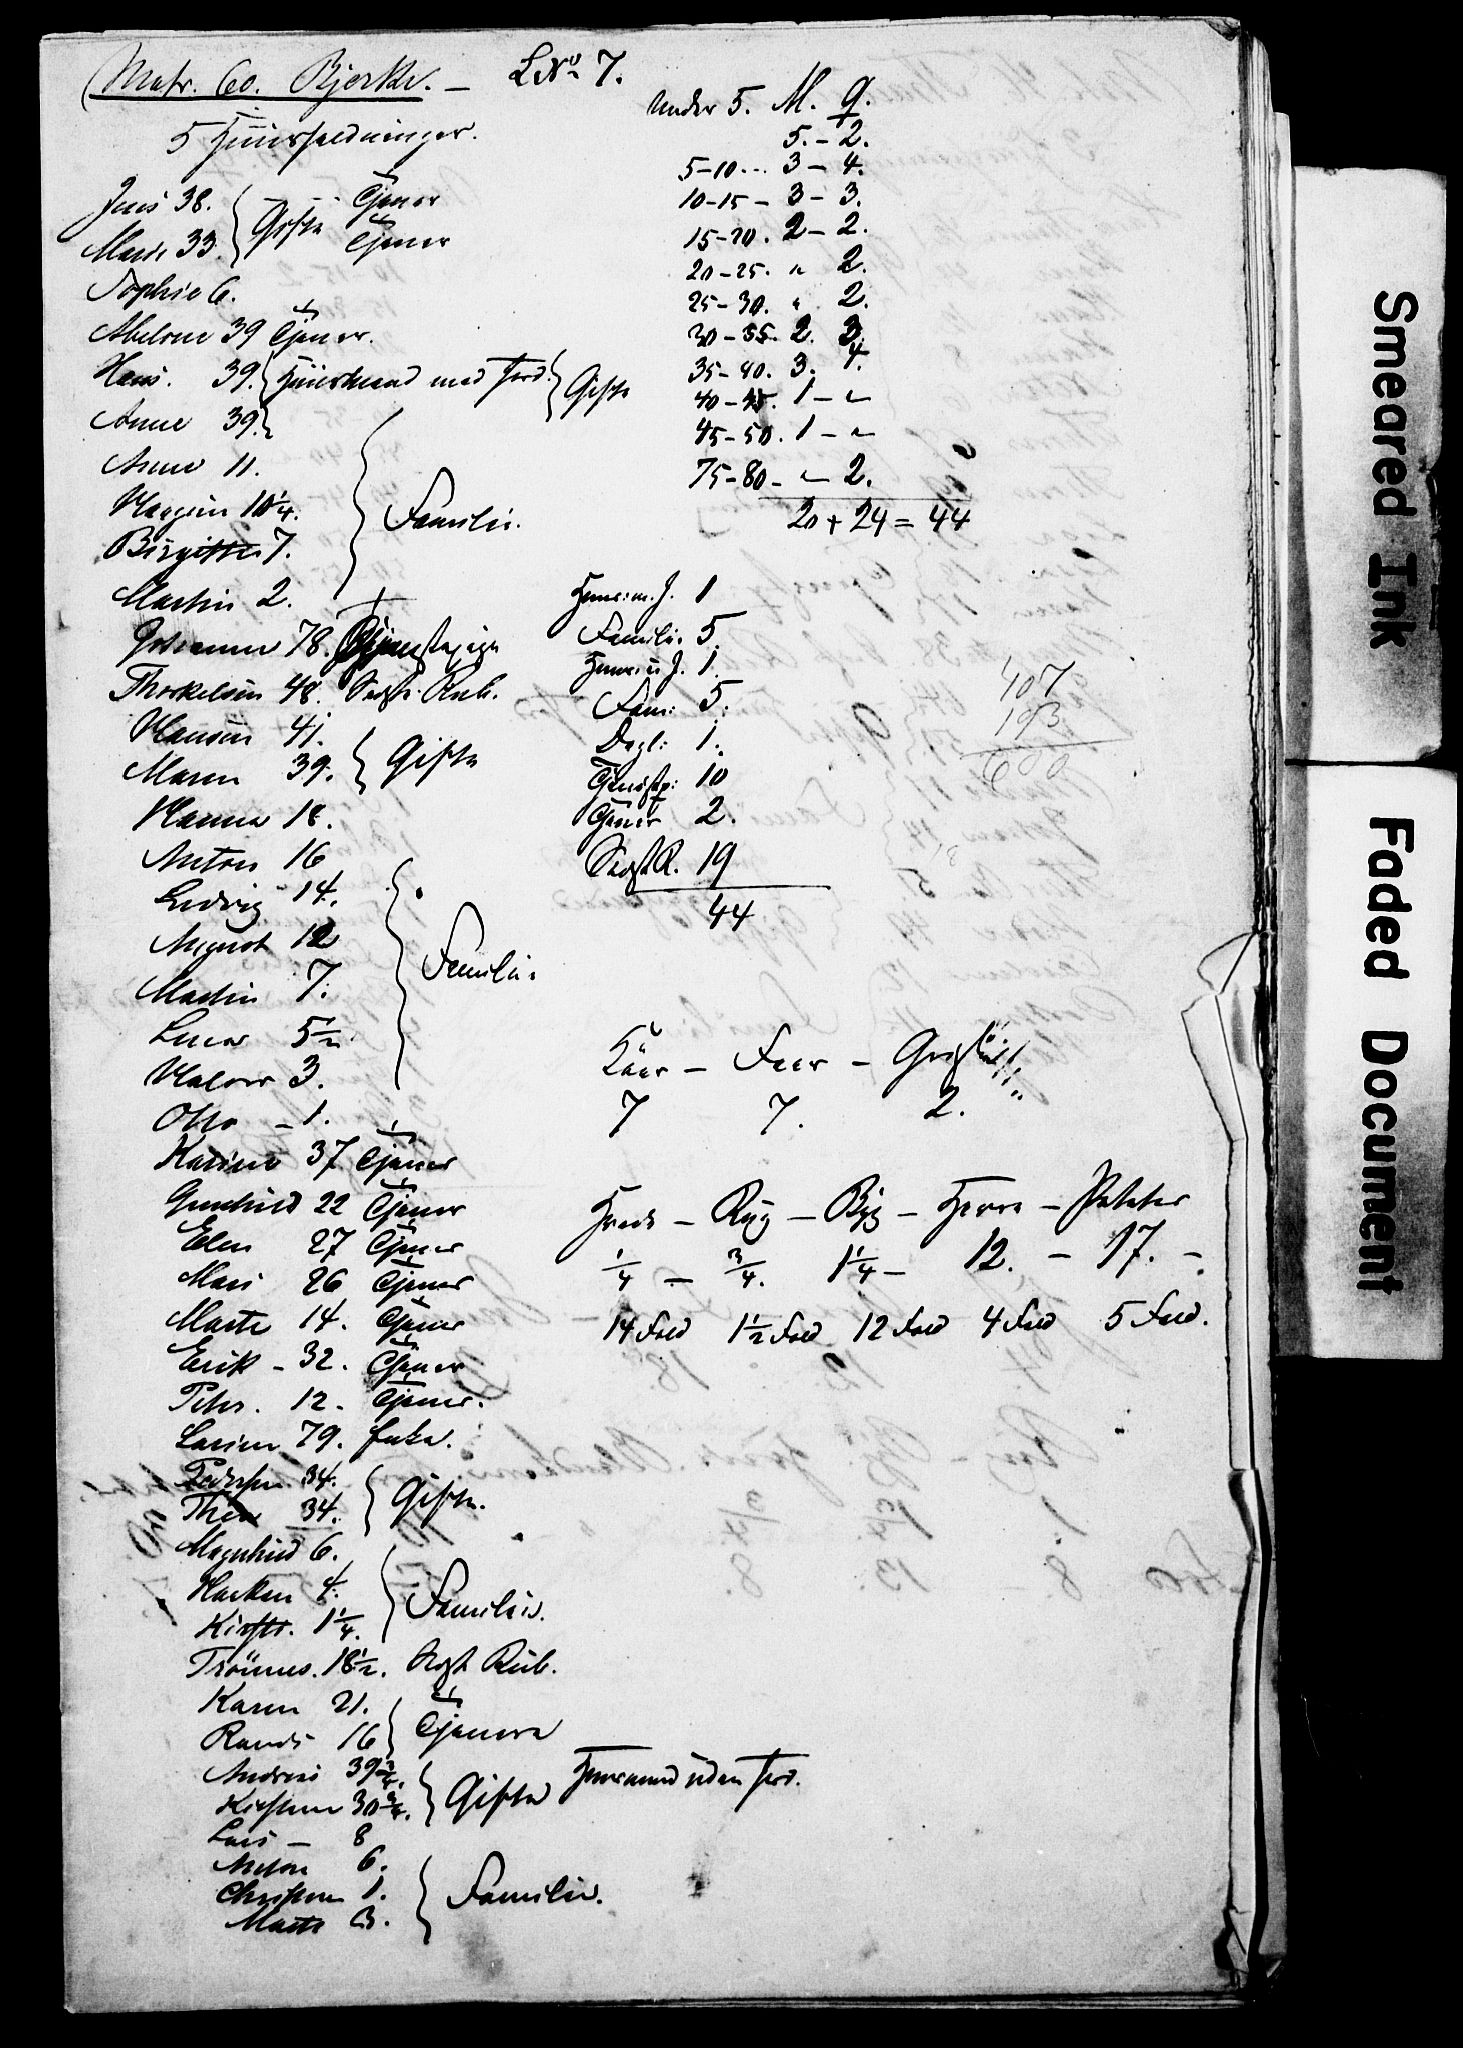 Matr. 60. Bjerke. – LNo 7.
5 Huusholdninger.
Jens 38. } Gifte – Tjener
Marie 33. Tjener
Sophie 6.
Abelone 39 Tjener.
Hans. 39. { Huusmand med Jord. } Gifte
Anne 39.
Anne 11.
Margrin 10 1/4. } Familie.
Birgitte 7.
Martin 2.
Johanne 78.
Thorkelsen 48. Sagt. Rub.
Hansen 41. } Gifte
Maren 39.
Hanna 18.
Anton 16
Ludvig 14.
August 12 } Familie
Martin 7.
Lina 5 1/2
Halvor 3.
Otto – 1.
Karine 37 Tjener
Gunhild 22 Tjener
Elen 27 Tjener
Mari 26 Tjener
Marte 14. Tjener
Erik – 32. Tjener
Peter. 12. Tjener.
Larine 79. Enke.
Pedersen 34. } Gifte.
Thea 34.
Magnhild 6.
Haaken 4. } Familie.
Kirsti. 1 1/4.
Trönnes. 18 1/2. Sagt Rub.
Karen 21. } Tjenere
Randi 16
Andreas 39 3/4. } Gifte Huusmand uden Jord.
Kirstine 30 3/4.
Lars – 8
Anton 6.
Christian 1. } Familie.
Marte 3.
Under 5. M. Q.
5. – 2.
5–10 ... 3 – 4.
10–15 – 3 – 3.
15–20. 2 – 2.
20–25. " 2.
25–30. " 2.
30–35. 2. 3.
35–40. 3. 4.
40–45. 1 – "
45–50. 1 – "
75–80 – " 2.
20 + 24 = 44
Huusm. m. J. 1
Familie 5.
Huusm. u. J. 1.
Fam: 5.
Dagl: 1.
Tjenestp: 10
Tjener 2.
Sagt R. 19
44
407
193
600
Köer – Faar – Griser
7 7. 2.
Hvede – Rug – Byg – Havre – Poteter
1/4 – 3/4. 1 1/4 – 12. – 17. –
14 Fold 1 1/2 Fold 12 Fold 4 Fold 5 Fold.
Smeared Ink
Faded Document